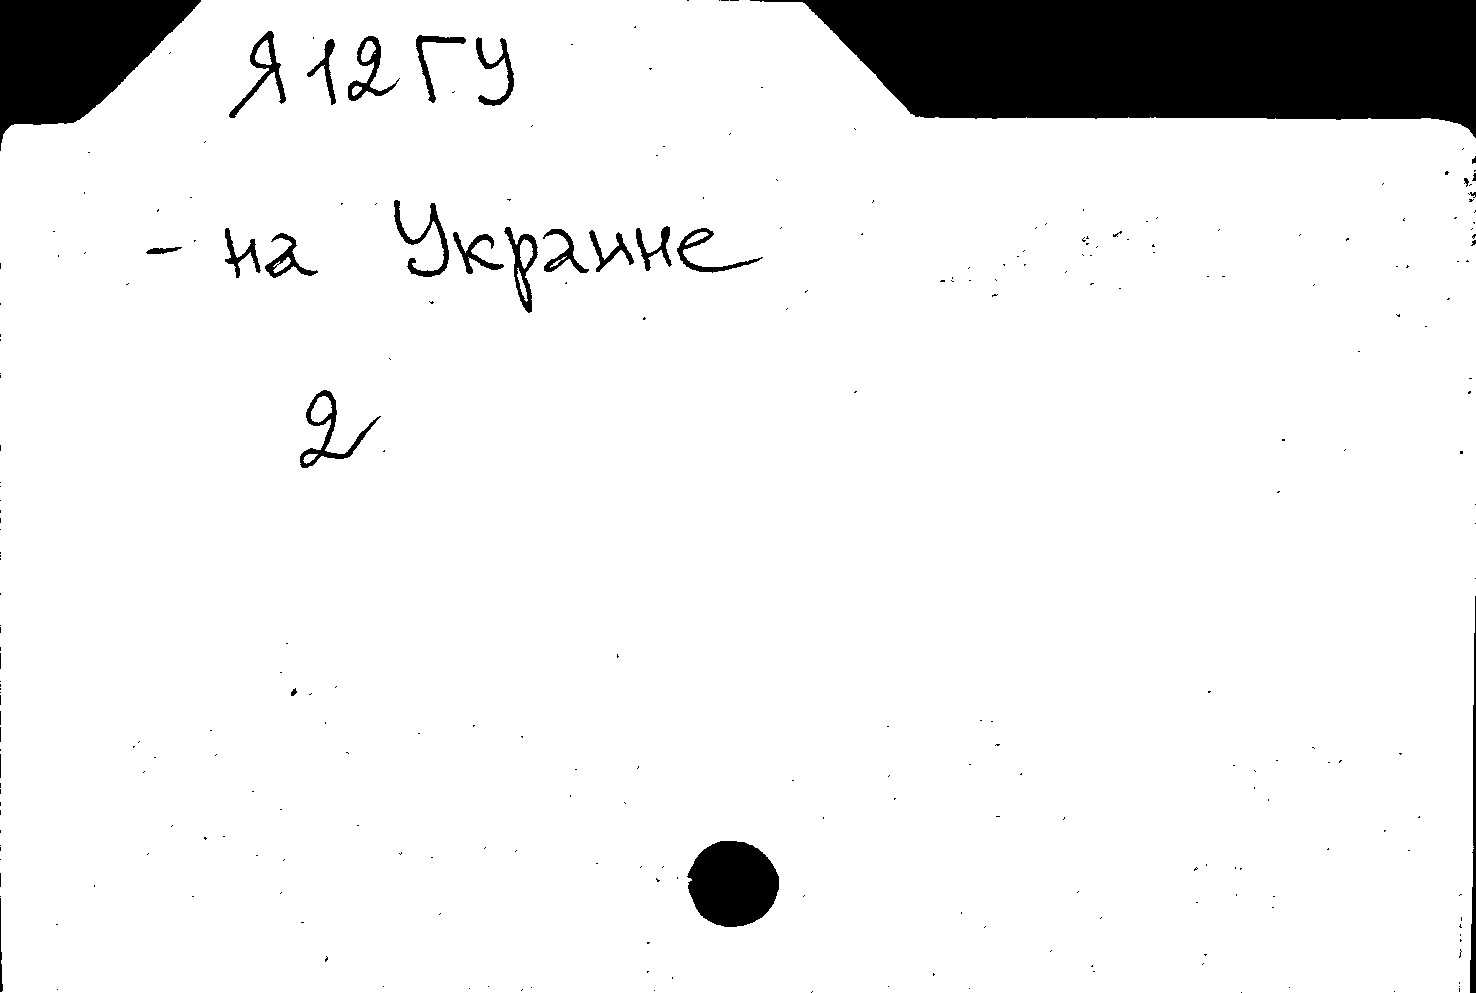 Я12ГУ
- на Украине
2